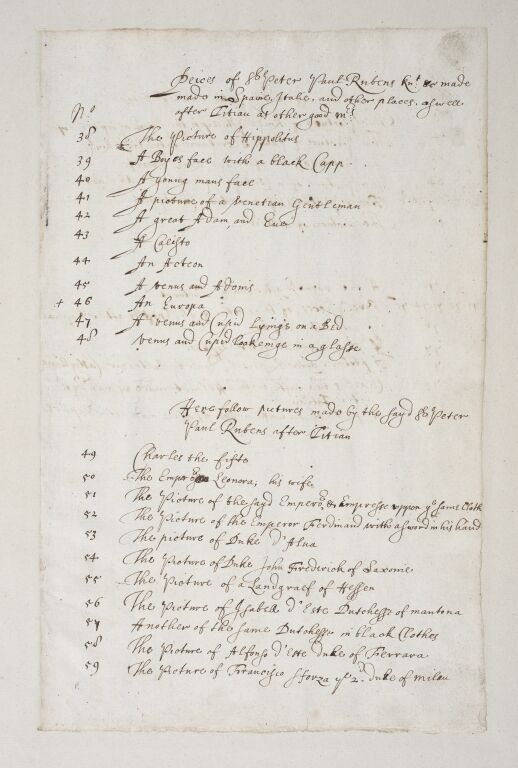 Peices of Sr Peter Paul Rubens knt made
made in Spaine, Italie, and other places, aswell
after Titian as other good mrs
No
38 The Picture of Hippolitus
39 A Boyes face with a black Capp
40 A young mans face
41 A picture of a Venetian Gentleman
42 A great Adam, and Eue
43 A Calisto
44 An Acteon
45 A venus and Adonis
+ 46 An Europa
47 A venus and Cupid Lyinge on a Bed
48 Venus and Cupid lookeinge in a glasse
Here follow pictures made by the sayd Sr Peter
Paul Rubens after Titian
49 Charles the fifte
50 The Empresse Leonora, his wife
51 The Picture of the sayd Emperor & Empresse uppon ye same Cloth
52 The Picture of the Emperor Ferdinand with a sword in his hand
53 The picture of Duke d'Alua
54 The Picture of Duke John Frederick of Saxonie
55 The Picture of a Landgraef of Hessen
56 The Picture of Isabell d'Este Dutchesse of mantoua
57 Another of the same Dutchesse in black Clothes
58 The Picture of Alfonso d'Este duke of Ferrara
59 The Picture of Francisco Sforza ye 2.d duke of milan